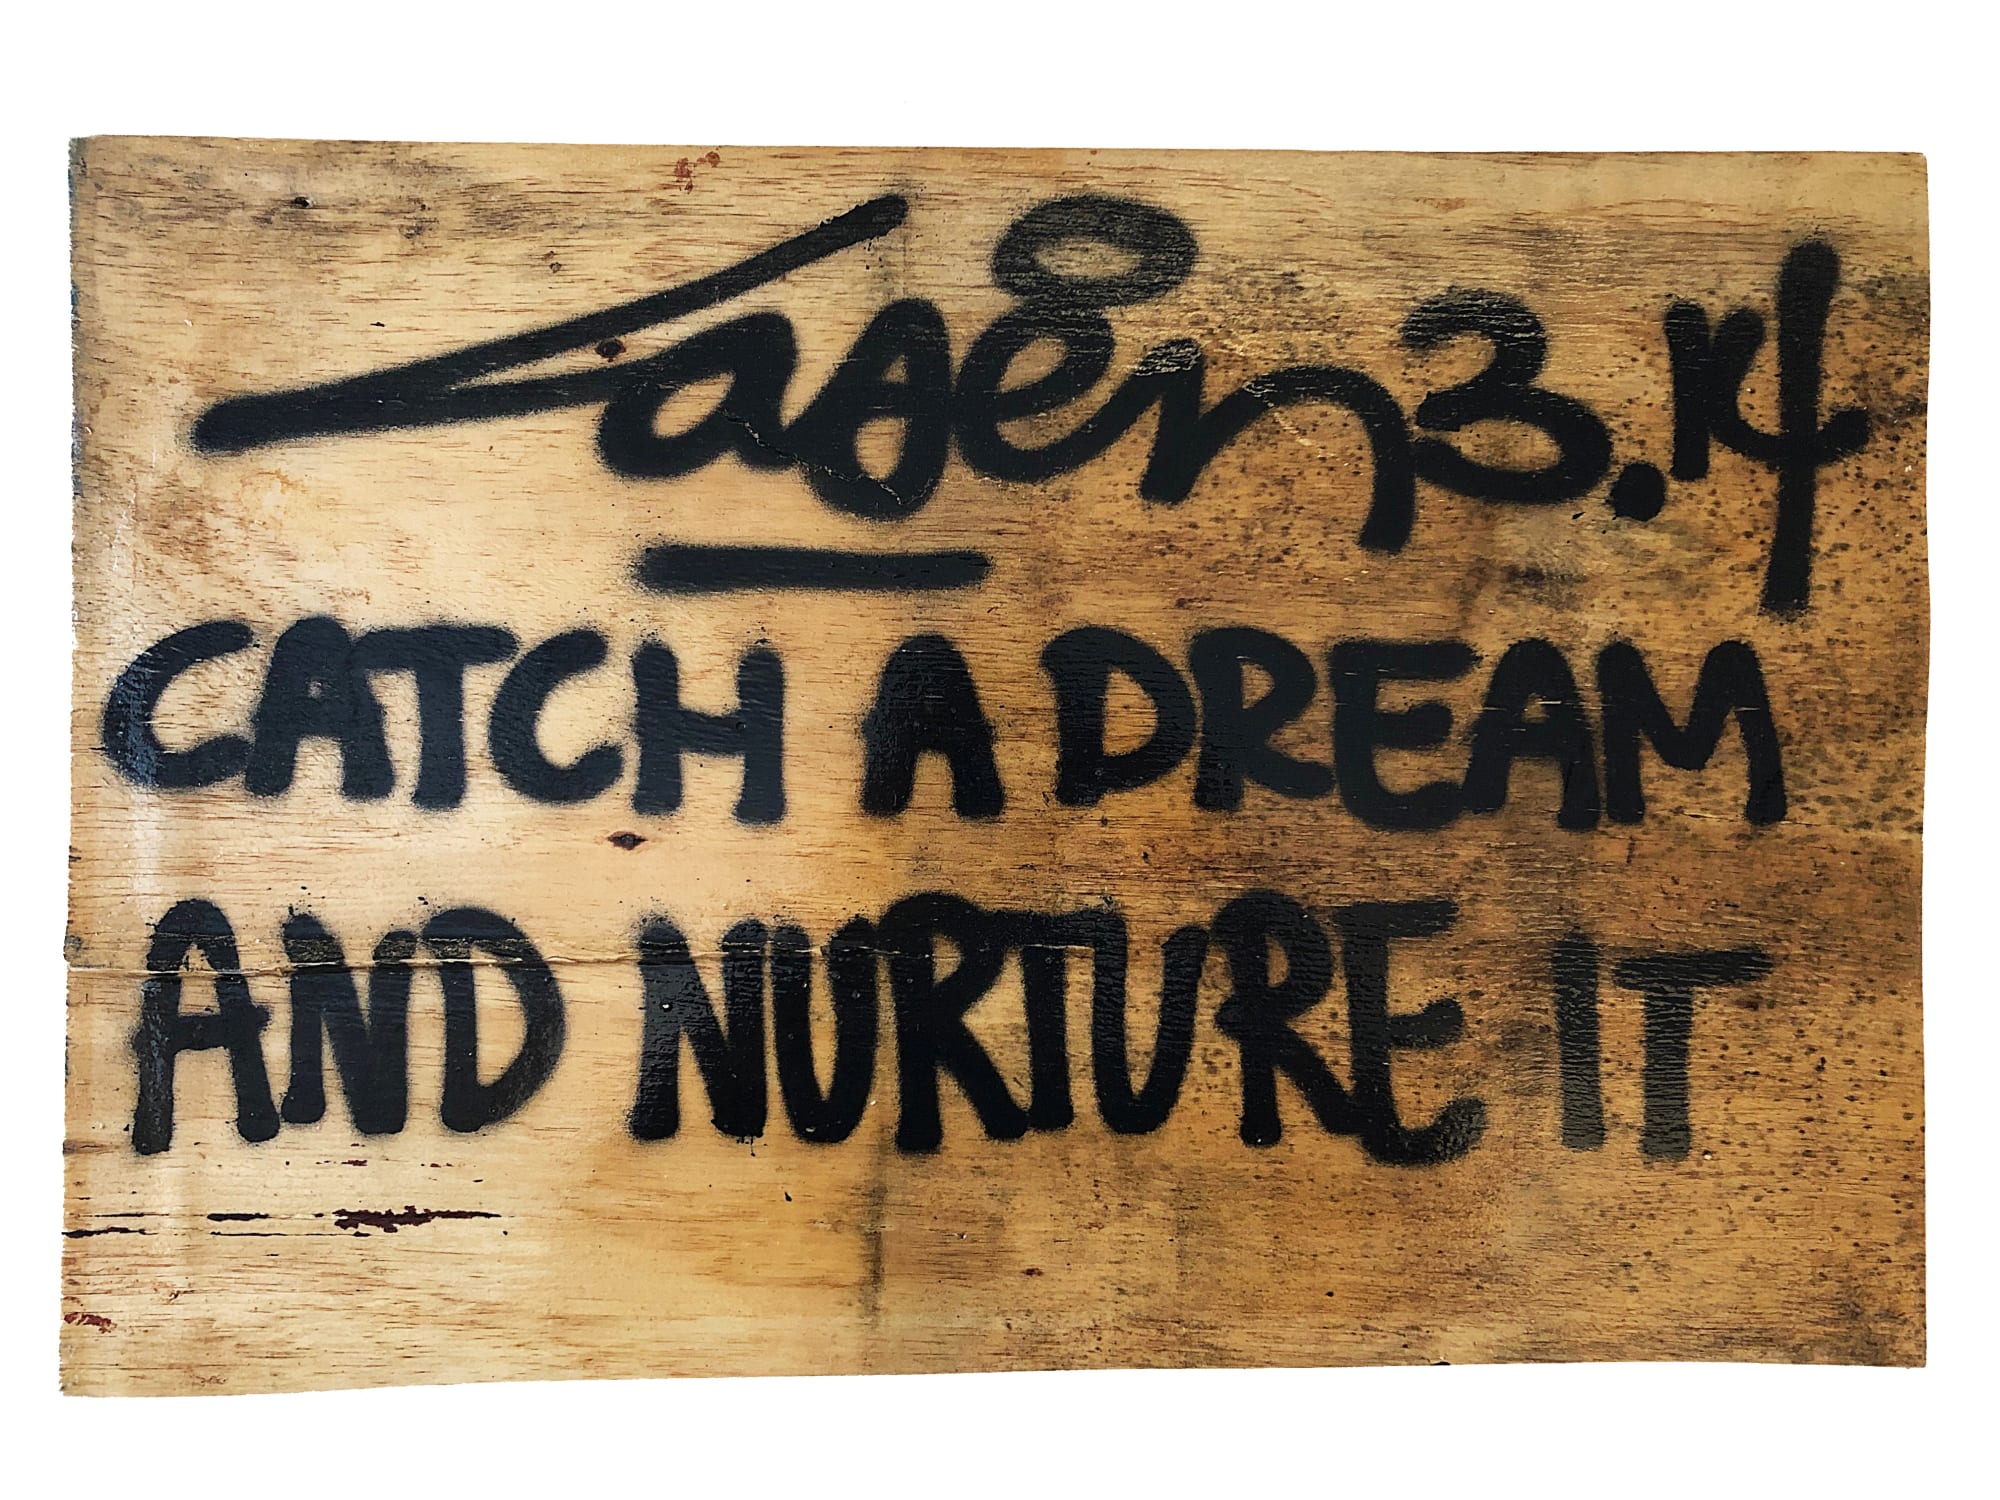 Laser 3.14
CATCH A DREAM
AND NURTURE IT